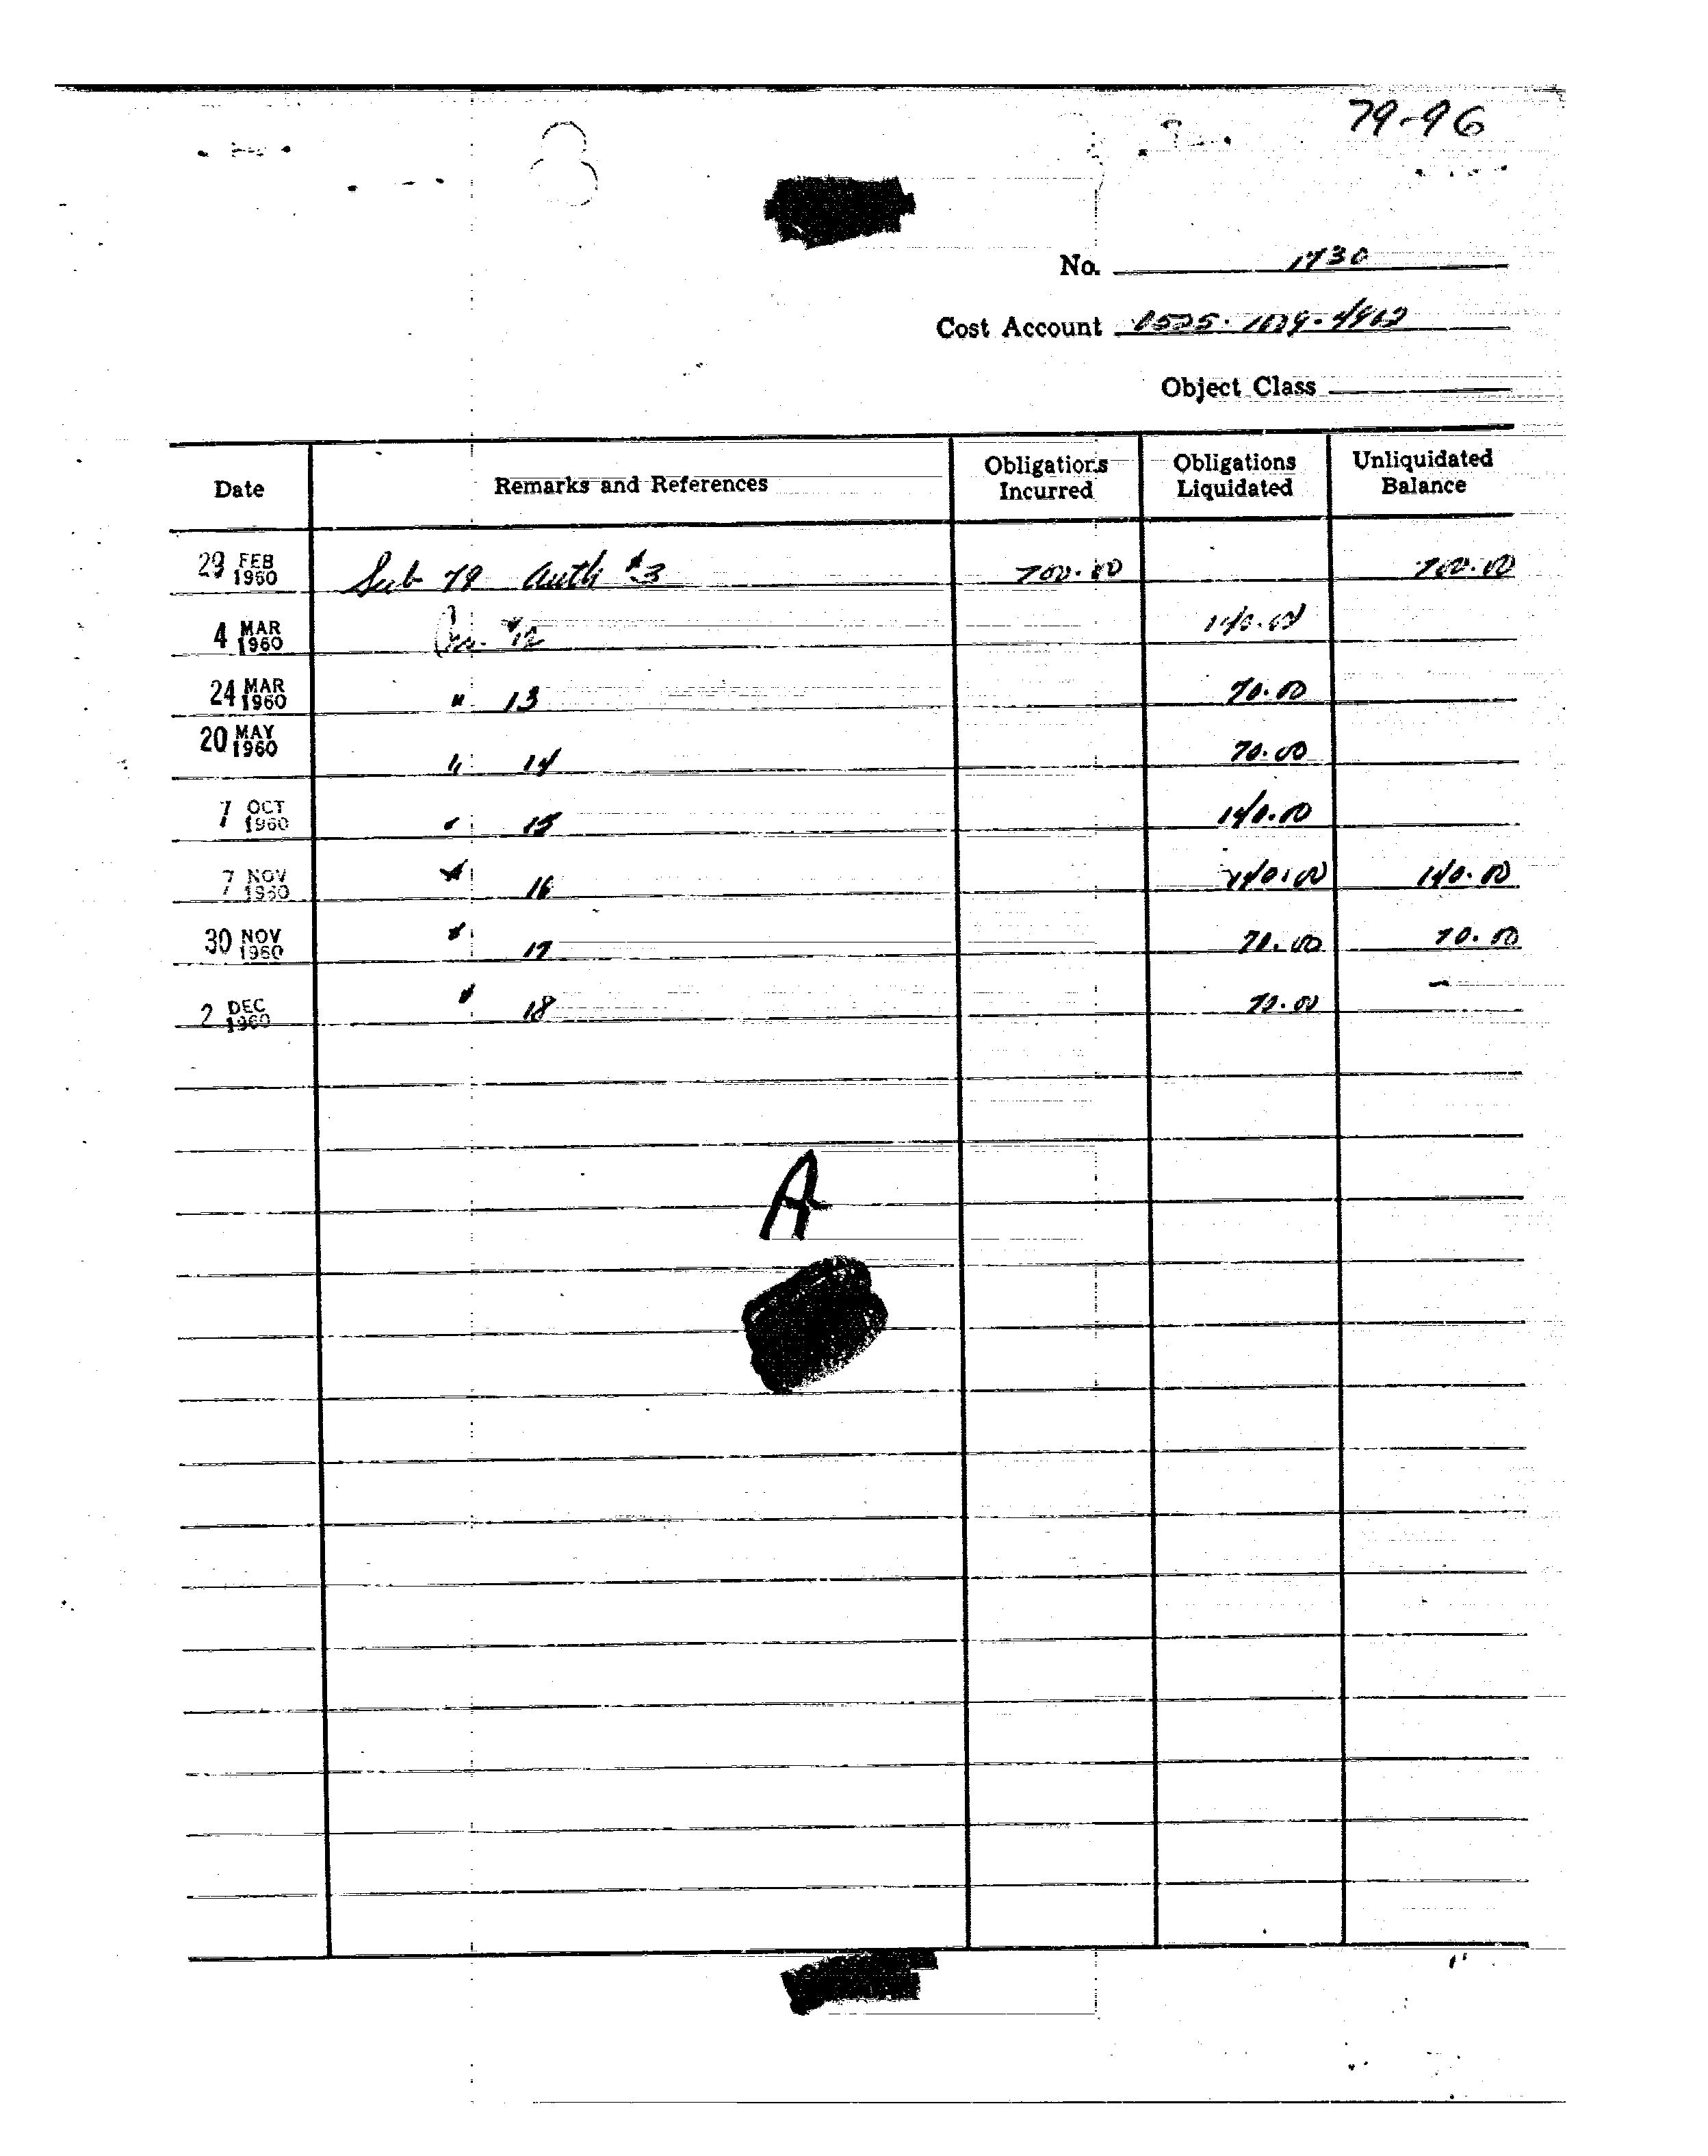 79-96
No. 1730
Cost Account 0525.1009.4902
Object Class
Date Remarks and References Obligations Incurred Obligations Liquidated Unliquidated Balance
29 FEB 1960 Sub 79 Auth #3 700.00 700.00
4 MAR 1960 #12 140.00
24 MAR 1960 " 13 70.00
20 MAY 1960 " 14 70.00
7 OCT 1960 15 140.00
7 NOV 1960 16 140.00 140.00
30 NOV 1960 17 70.00 70.00
2 DEC 1960 18 70.00 -
A